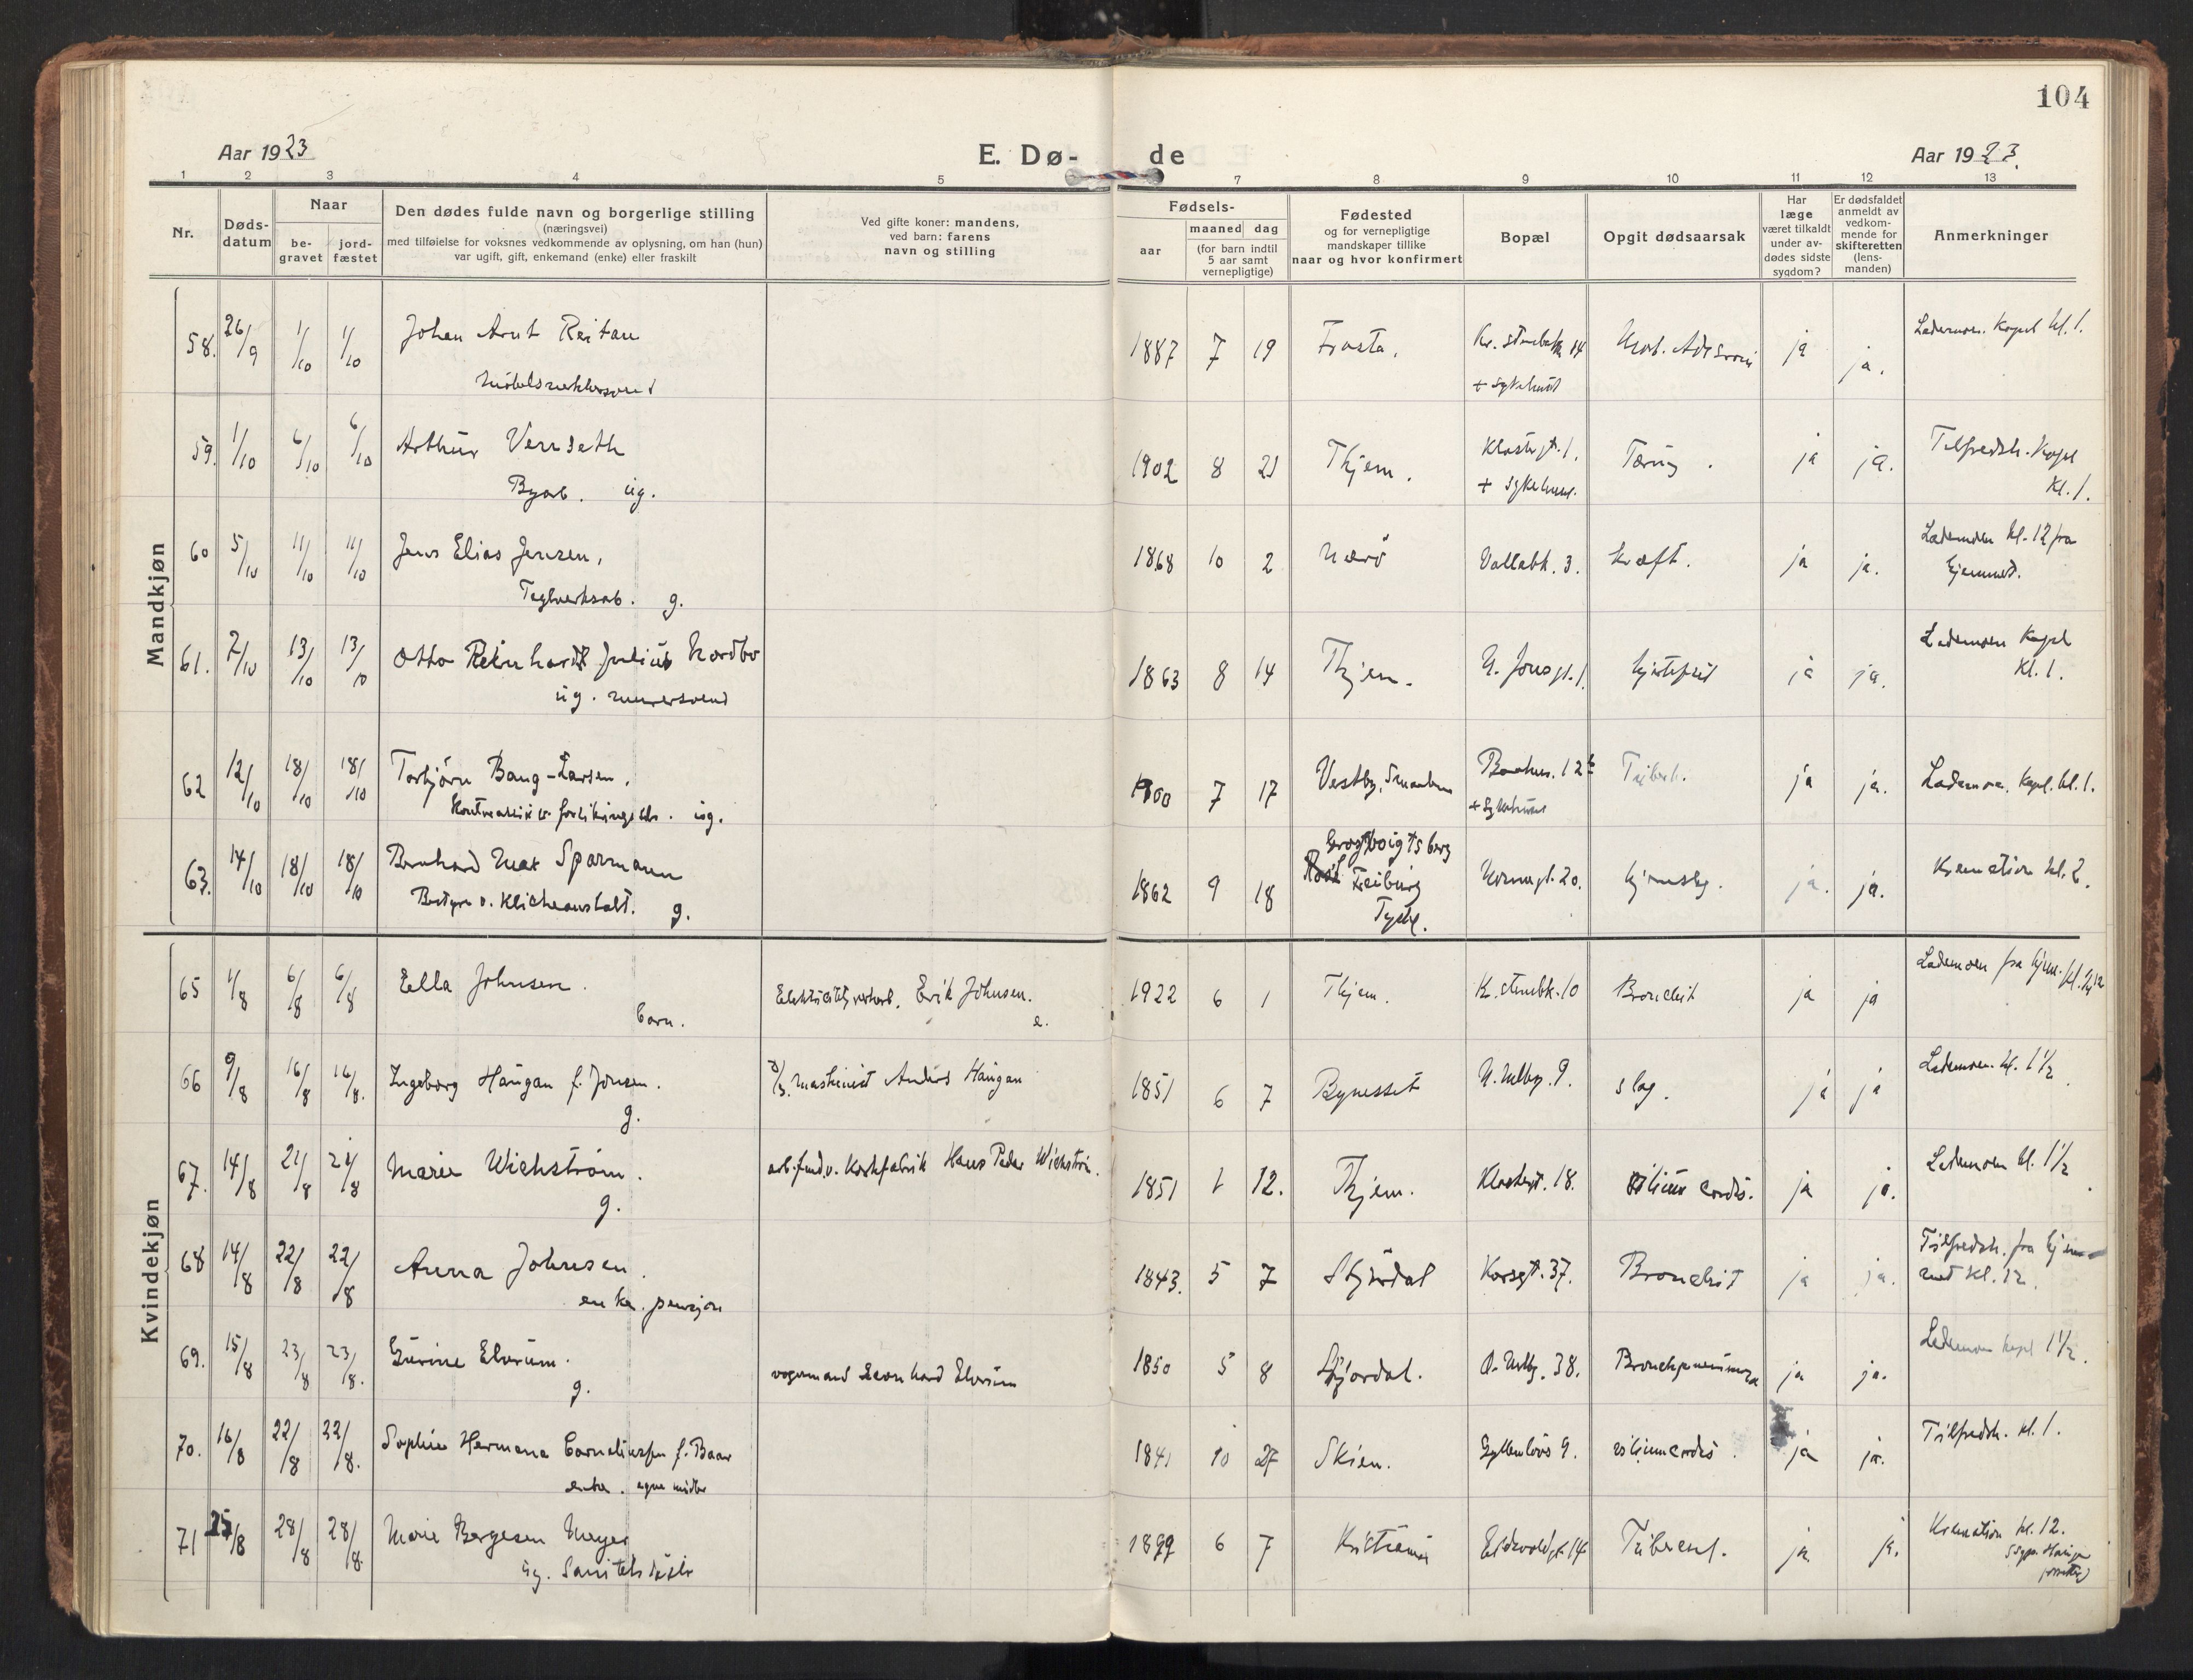 104
Aar 1923
E. Dø-
de
Aar 1923.
1 2 3 4 5 7 8 9 10 11 12 13
Nr.
Døds-
datum
Naar
be-
gravet
jord-
fæstet
Den dødes fulde navn og borgerlige stilling
(næringsvei)
med tilføielse for voksnes vedkommende av oplysning, om han (hun)
var ugift, gift, enkemand (enke) eller fraskilt
Ved gifte koner: mandens,
ved barn: farens
navn og stilling
Fødsels-
aar
maaned dag
(for barn indtil
5 aar samt
vernepligtige)
Fødested
og for vernepligtige
mandskaper tillike
naar og hvor konfirmert
Bopæl
Opgit dødsaarsak
Har
læge
været tilkaldt
under av-
dødes sidste
sygdom?
Er dødsfaldet
anmeldt av
vedkom-
mende for
skifteretten
(lens-
manden)
Anmerkninger
Mandkjøn
58. 26/9 1/10 1/10 Johan Arnt Reitan 1887 7 19 Frosta. ja ja. Lademoen. Kapel kl. 1.
+ sykehuset
59. 1/10 6/10 6/10 Arthur Vennseth 1902 8 21 Thjem. Klostergt. 1. Tæring. ja ja. Tilfredsh. Kapel
Byarb. ug. + sykehus. kl. 1.
60 5/10 11/10 11/10 Jens Elias Jensen, 1868 10 2 Nærö Vollabk. 3. Kræft. ja ja. Lademoen kl. 12 fra
Teglverksarb. g. hjemmet.
61. 7/10 13/10 13/10 Otto Reinhardt Julius Nordbo 1863 8 14 Thjem. hjertefeil ja ja. Lademoen Kapel
ug. murersvend kl. 1.
62 12/10 18/10 18/10 Torbjörn Bang-Larsen. 1900 7 17 Vestby, Smaalen Tuberk. ja ja. Lademoen. Kapel. kl. 1.
ug. + sykehuset
63. 14/10 18/10 18/10 Bernhard Max Sparmann 1862 9 18 Grossvoigtsberg
Freiburg hjernesley. ja. ja. Kremation kl. 2.
Bestyrer v. Klicheanstalt. g. Tyskl.
Kvindekjøn
65 1/8 6/8 6/8 Ella Johnsen. Elektricitetsverksarb. Erik Johnsen. 1922 6 1 Thjem. K. stensbk. 10 Bronchit ja ja Lademoen fra hjem.
barn. e.
66 9/8 16/8 16/8. Ingeborg Haugan f. Jonsen. maskinist Anders Haugan 1851 6 7 Bynesset slag. ja ja Lademoen. kl. 1 1/2
g.
67. 14/8 21/8 21/8 Marie Wichström. arb.fmd. v. Korkfabrik Hans Peder Wichström. 1851 1 12. Thjem. Klostergt. 18. vitium cordis. ja ja. Lademoen kl. 1 1/2
g.
68 14/8 22/8 22/8 Anna Johnsen. 1843. 5 7 Stjördal Korsgt. 37. Bronchit ja ja. Tilfredsh. fra hjem-
enke. pensjon met kl. 12.
69. 15/8 23/8 23/8. Gurine Elvrum. vognmand Leonhard Elvrum 1850 5 8 Stjordal. Ø. Møllbg. 38. Bronchpneumonia ja ja. Lademoen kapel 1 1/2.
g.
70. 16/8 22/8 22/8. Sophie Hermana Corneliussen f. Baar 1841 10 27 Skien. Gyllenlövs 9. vitium cordis. ja ja. Tilfredsh. kl. 1.
enke. egne midler
71 25/8 28/8 28/8. Marie Bergesen Meyer 1899 6 7 Kristiania Eidsvoldgt. 14 Tubercul. ja ja. Kremation kl. 12.
ug.